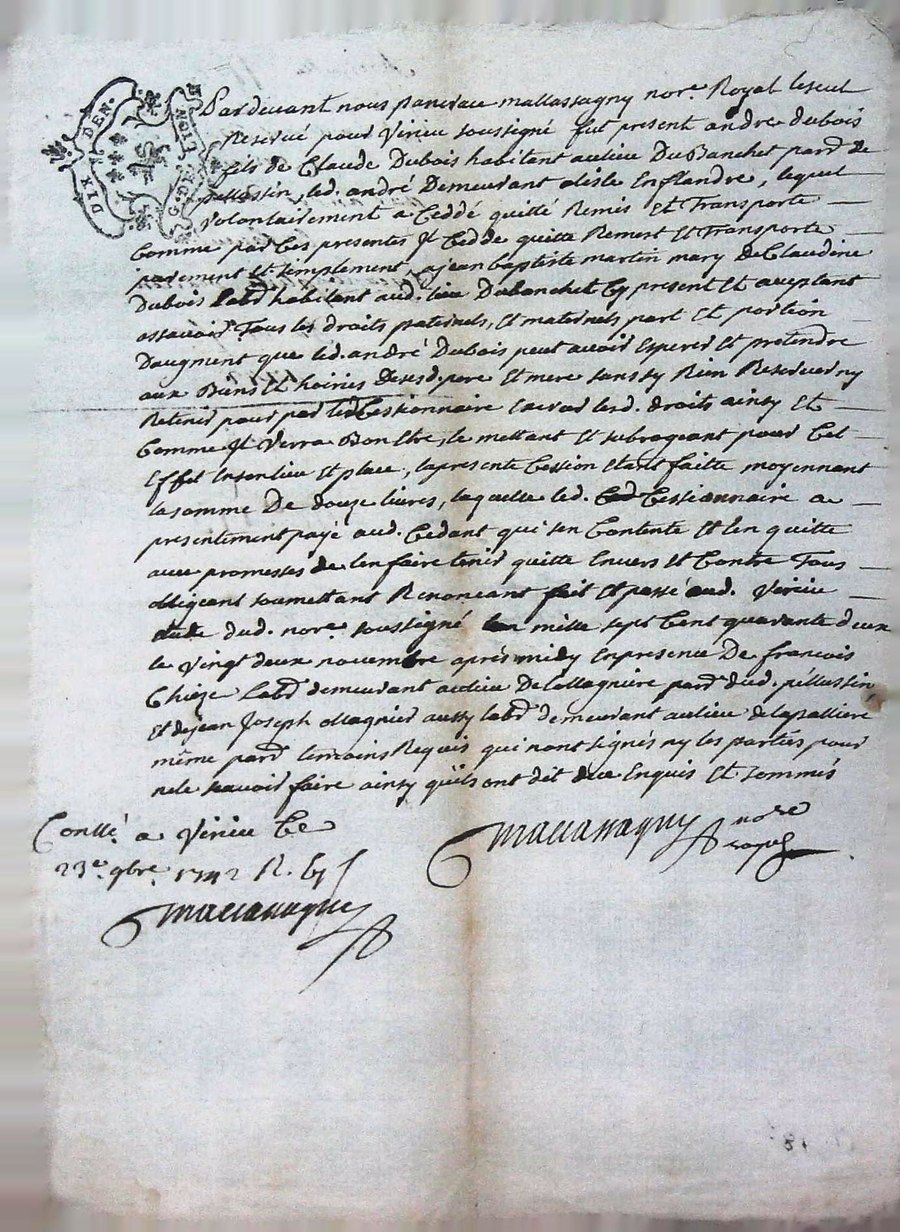 DIX DEN.
G. DE LYON
Pardevant nous pancrace mallassagny nore. Royal le seul
Reservé pour Virieu soussigné fut present andré dubois
fils de Claude Dubois habitant au lieu Du Banchet parr. de
pellussin, led. andré Demeurant a lisle En flandre, lequel
volontairement a Ceddé quitté Remis Et Transporte
Comme par Ces presentes Il Cedde quitte Remest Et Transporte
purement Et simplement, a jean baptiste martin mary de Claudine
Dubois Labr. habitant aud. lieu Dubanchet Cy present Et acceptant
assavoir Tous les droits paternels, Et maternels part Et portion
Daugment que led. andré Dubois peut avoir Esperer Et pretendre
aux Biens Et hoiries desesd. pere Et mere sans sy Rien Reserver ny
Retenir pour par led. Cessionnaire lesd. droits ainsy Et
Comme Il Verra Bon Estre, le mettant Et subrogeant pour Cet
Effet En son lieu Et place, la presente Cession Etant faitte moyennant
la somme De douze livres, laquelle led. Cessionnaire a
presentement payé aud. Cedant qui sen Contente Et len quitte
avec promesses de len faire tenir quitte Envers Et Contre Tous
obligeant soumettant Renonceant fait Et passé aud. Virieu
Etude dud. nore. soussigné Lan mille sept Cent quarante deux
le vingt deux novembre après midy En presence De francois
Chieze Labr. demeurant au lieu De parr. dud. péllussin
Et de jean Joseph Magnier aussy labr. demeurant au lieu de lapalliere
même parr. temoins Requis qui nont signés ny les parties pour
ne le scavoir faire ainsy quils ont dit de ce Enquis Et sommés
Mallassagny nore
royal
Conllé. a Virieu Ce
23e. 9bre. 1742 R.
Mallassagny